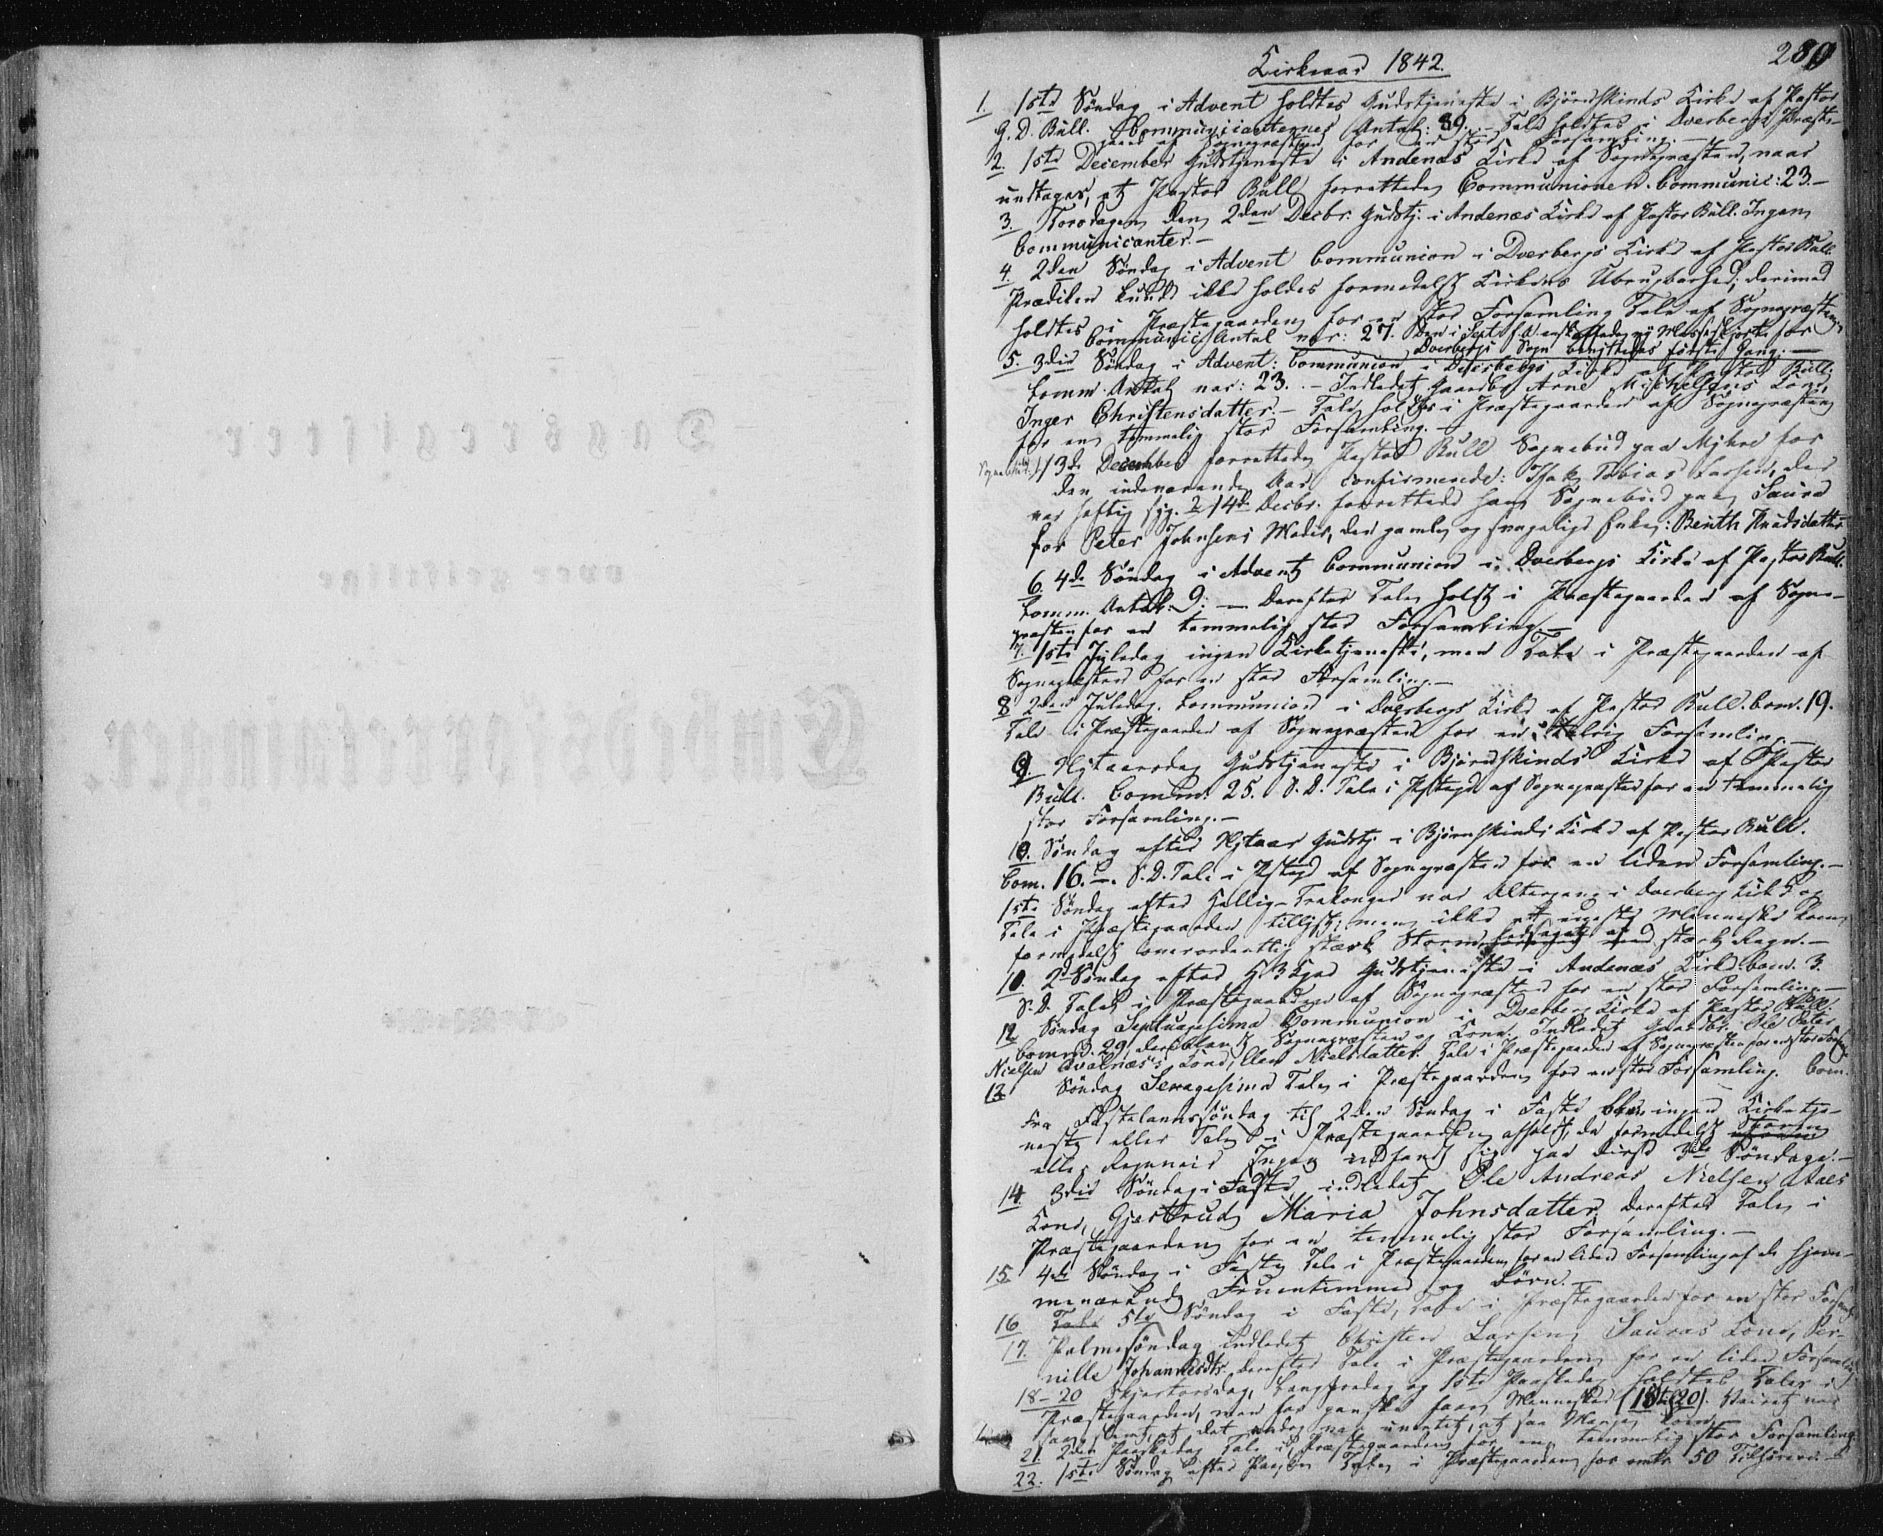 289
Kirkeaar 1842.
1. 1ste Søndag i Advent holdtes Gudstjeneste i Bjørnskinds Kirke af Pastor
G. D. Bull. Communicanternes Antal: 89. – Tale holdtes i Dverbergs Præste-
gaard af Sognepræsten for en stor Forsamling. –
2. 1ste December Gudstjeneste i Andenæs Kirke af Sognepræsten, naar
undtages, at Pastor Bull forrettede Communionen. Communic: 23. –
3. Torsdagen den 2den Decbr. Gudstj. i Andenæs Kirke af Pastor Bull. Ingen
Communicanter. –
4. 2den Søndag i Advent Communion i Dverbergs Kirke af Pastor Bull.
Prædiken kunde ikke holdes formedelst Kirkens Ubrugbarhed; derimod
holdtes i Præstegaarden for en stor Forsamling Tale af Sognepræsten.
Communic. Antal var: 27. Den i Sept. f. A. anskaffede ny Messeskjorte for
Dverbergs Sogn benyttedes første Gang. –
5. 3die Søndag i Advent: Communion i Dverbergs Kirke af Pastor Bull.
Comm. Antal var: 23. – Indledet Gaardbr. Arne Michelsens Kone
Inger Christensdatter. – Tale holdtes i Præstegaarden af Sognepræsten
for en temmelig stor Forsamling. –
Sognebud. 1) 13de December forrettede Pastor Bull Sognebud paa Myhre for
den indeværende Aar confirmerede: Isak Tobias Larsen, der
var heftig syg. 2) 14de Decbr. forrettede han Sognebud paa Saura
for Peter Johnsens Moder, den gamle og svagelige Enke: Berith Knudsdatter.
6. 4de Søndag i Advent Communion i Dverbergs Kirke af Pastor Bull.
Comm. Antal: 9: – Derefter Tale holdt i Præstegaarden af Sogne-
præsten for en temmelig stor Forsamling. –
7. 1ste Juledag ingen Kirketjeneste, men Tale i Præstegaarden af
Sognepræsten for en stor Forsamling. –
8 2den Juledag. Communion i Dverbergs Kirke af Pastor Bull. Com. 19.
Tale i Præstegaarden af Sognepræsten for en talrig Forsamling. –
9. Nytaarsdag Gudstjeneste i Bjørnskinds Kirke af Pastor
Bull. Comm: 25. S. D. Tale i Pstgd af Sognepræsten for en temmelig
stor Forsamling. –
10. Søndag efter Nytaar Gudstj. i Bjørnskinds Kirke af Pastor Bull.
Com. 16. –. S. D. Tale i Pstgd af Sognepræsten for en liden Forsamling. –
1ste Søndag efter Hellig-Trekonger var Altergang i Dverberg Kirke og
Tale i Præstegaarden tillyst; men ikke et eneste Menneske kom,
formedelst overordentlig stærk Storm, ledsaget af stærk Regn. –
10. 2d Søndag efter H. 3 Kger Gudstjeneste i Andenæs Kirke. Com. 3.
S. D. Tale i Præstegaarden af Sognepræsten for en stor Forsamling. –
12 Søndag Septuagesima Communion i Dverbergs Kirke af Pastor Bull
Comm. 29, deriblandt Sognepræsten og Kone. Indledet Gaardbr. Ole Peter
Nielsen Qvalnæs's Kone, Ellen Nielsdatter. Tale i Præstegaarden af Sognepræsten for en stor Fors.
13 Søndag Sexagesima Tale i Præstegaarden for en stor Forsamling.
Fra Fastelavnssøndag til 2den Søndag i Faste blev ingen Kirketje-
neste eller Tale i Præstegaarden afholdt, da formedelst Storm
eller Regnveir Ingen indfandt sig paa disse 3de Søndage. –
14 3die Søndag i Faste indledet Ole Andreas Nielsen Aaes
Kone, Gjertrud Maria Johnsdatter. Derefter Tale i
Præstegaarden for en temmelig stor Forsamling. –
15. 4de Søndag i Faste Tale i Præstegaarden for en liden Forsamling af de hjem-
meværende Fruentimmer og Børn. –
16 Tale 5te Søndag i Faste, Tale i Præstegaarden for en stor Forsamlg
17. Palmesøndag indledet Christen Larsen Sauras Kone, Per-
nille Johannesdtr. derefter Tale i Præstegaarden for en liden Forsamling
18–20 Skjertorsdag, Langfredag og 1ste Paaskedag holdtes Taler i
Præstegaarden, men for ganske faae Mennesker (18, 20). Veiret var
saa slemt, at det endog var uventet, at saa Mange kom. –
21. 2den Paaskedag Tale i Præstegaarden for en temmelig stor Forsamling
22. 1ste Søndag efter Paaske Tale i Præstegaarden for omtr. 50 Tilhørere. –
Dagsregister
over geistlige
Embedsforretninger.